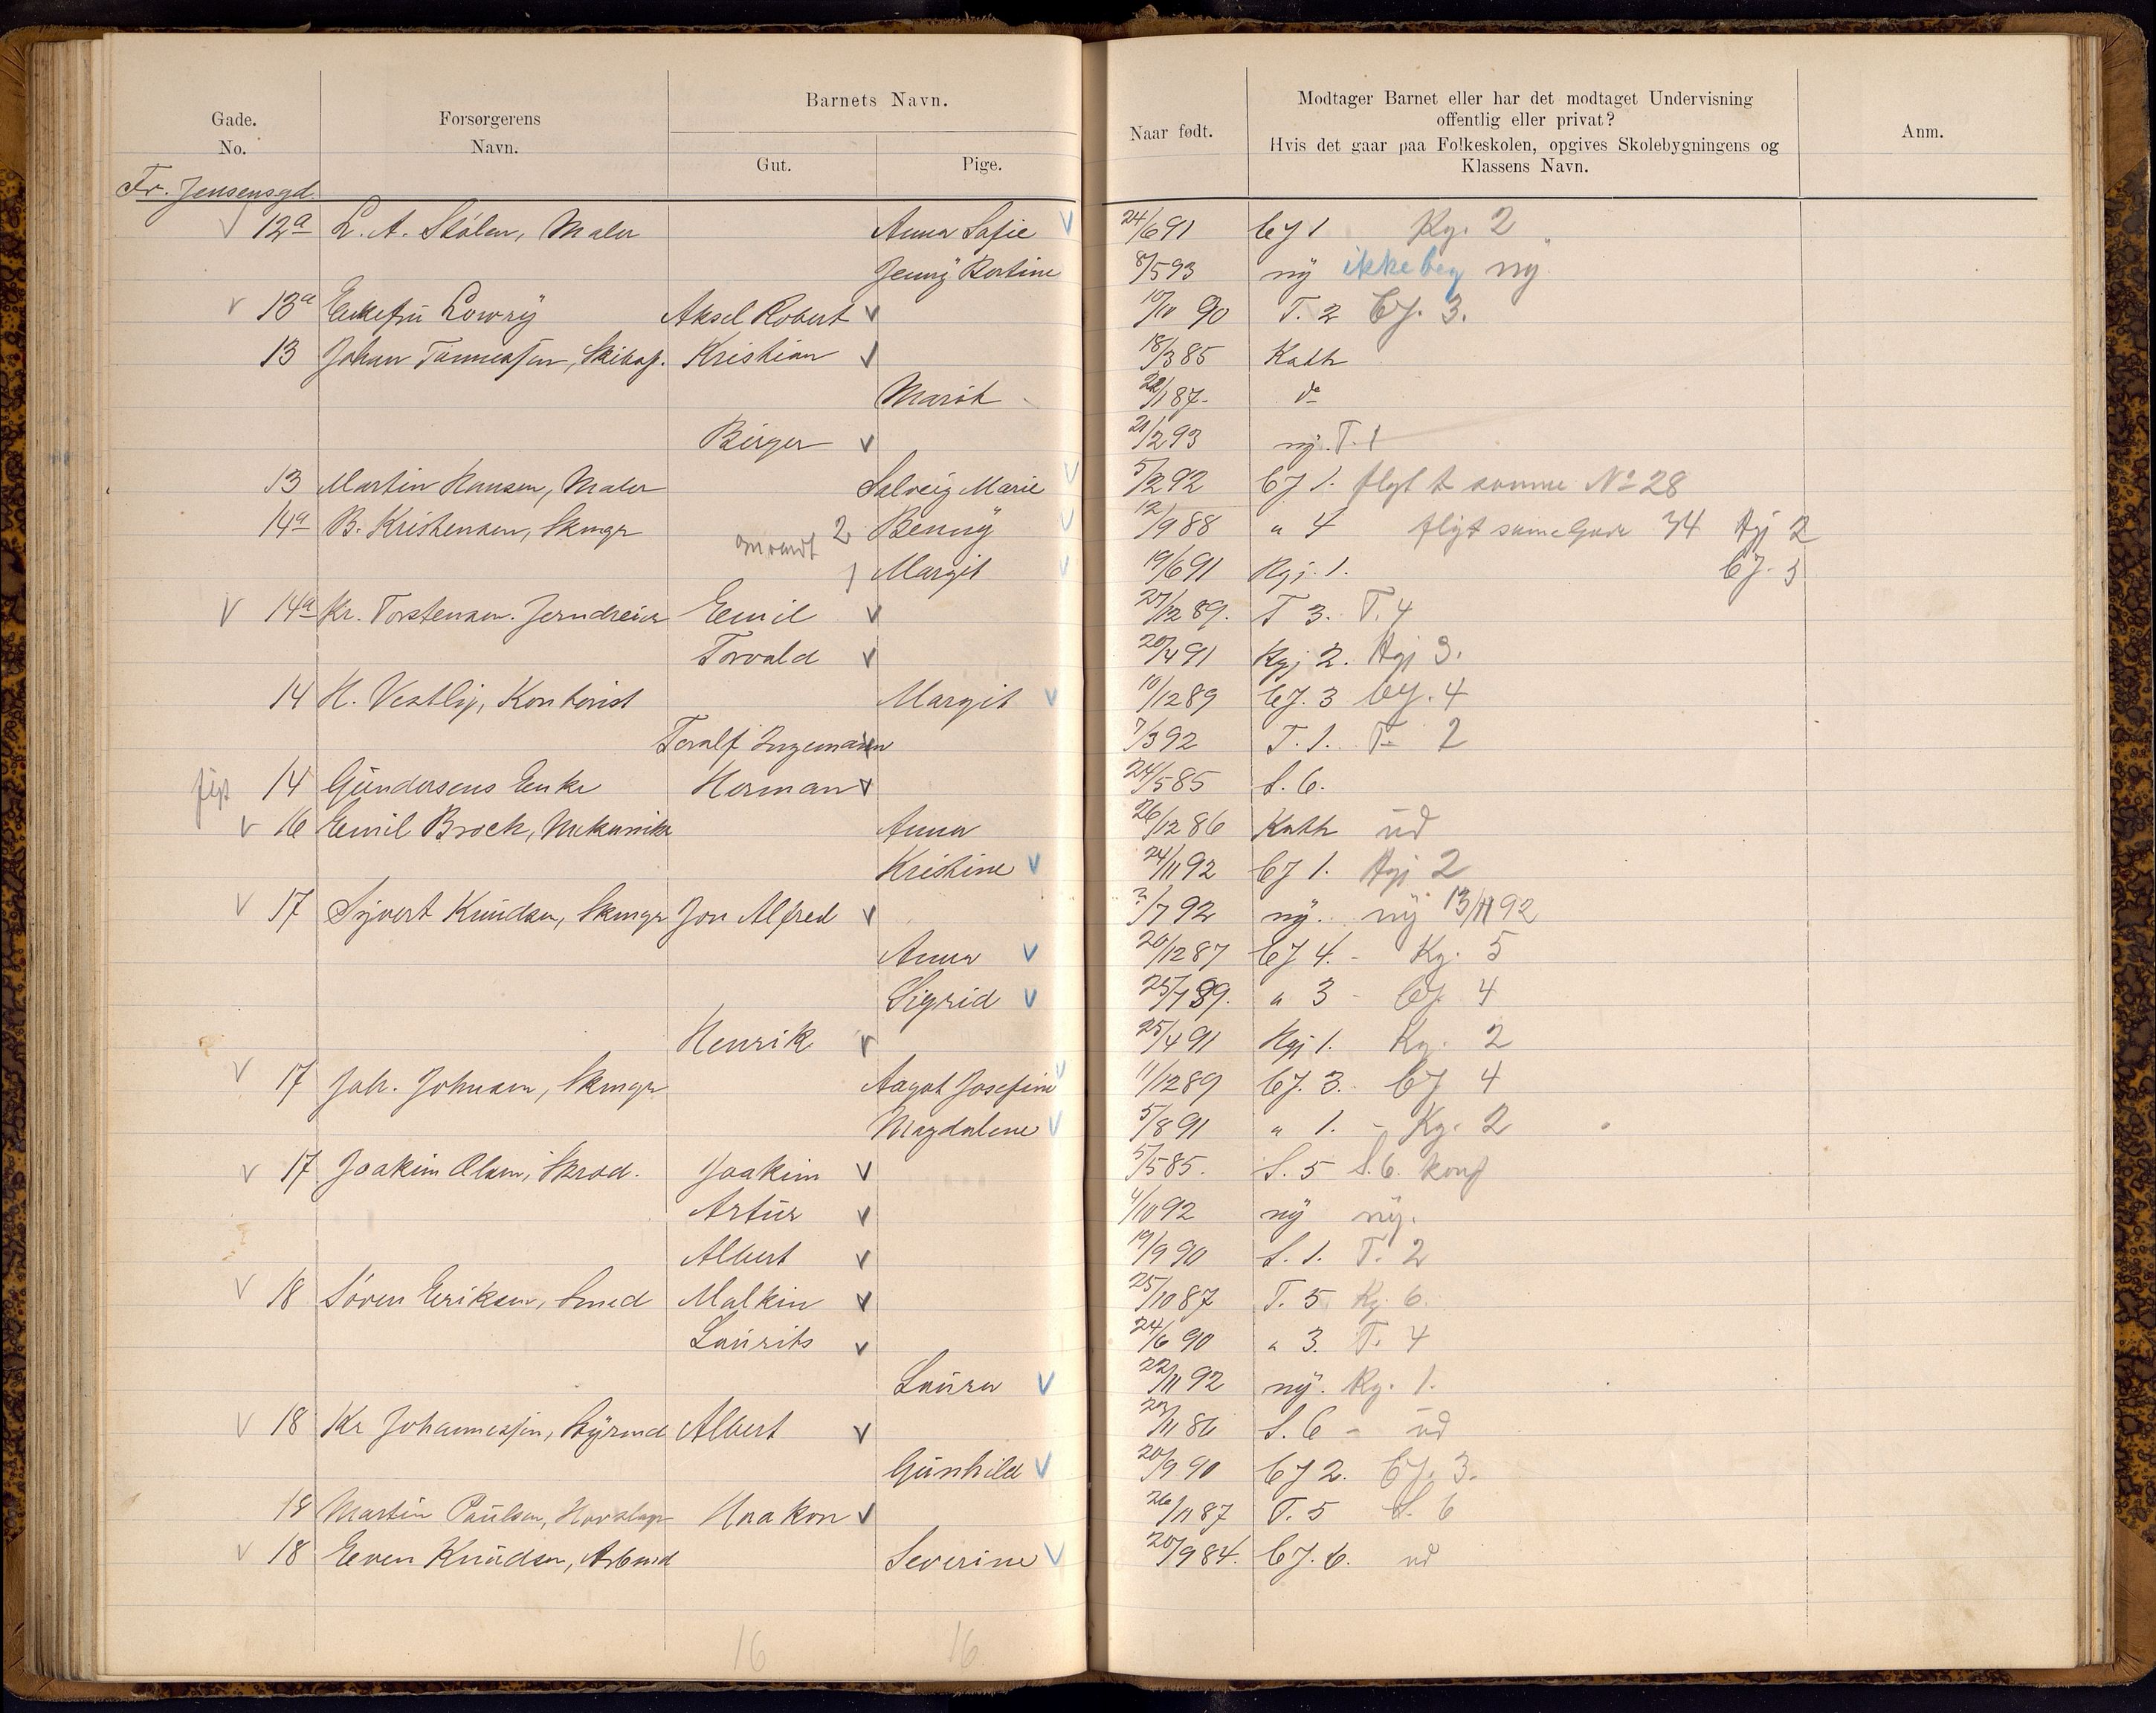 Gade.
No.
Forsørgerens
Navn.
Barnets Navn.
Gut.
Pige.
Naar født.
Modtager Barnet eller har det modtaget Undervisning
offentlig eller privat?
Hvis det gaar paa Folkeskolen, opgives Skolebygningens og
Klassens Navn.
Anm.
Fr. Jensensgd.
12a L. A. Stølen, Maler Anna Sofie 24/6 91 Kg. 2
Jenny 8/5 93 ny ikke beg ny
13a Enkefru Lowry Aksel Robert 90 T. 2 3.
13 Johan Kristian 18/3 85 Kath
Marit 87. do
Birger 21/2 93 ny. T. 1
13 Martin Hansen, Maler Solveig Marie 5/2 92 1. flyt t samme No 28
14a B. Kristensen, Skmgr 2 Benny 12/9 88 " 4 flyt samegade 34 2
omvendt 1 Margit 19/6 91 1. 3
14a Kr. Torstensen. Jerndreier Emil 27/12 89. T 3. T. 4
Torvald 20/4 91 2. 3.
14 H. Vestby, Kontorist Margit 10/12 89 3 4
Toralf Ingemann 7/3 92 T. 1. T. 2
flyt 14 Gundersens Enke Herman 24/5 85 S. 6.
16 Emil Brock, Mekanike Anna 26/12 86 Kath ud
Kristine 24/11 92 1. 2
17 Syvert Knudsen, Skmgr Jon Alfred ?/7 92 ny. ny 13/11 92
Anna 20/12 87 4. - Kg. 5
Sigrid 89. " 3 - 4
Henrik 25/4 91 1. Kg. 2
17 Joh. Johnsen, Skmgr Aagot Josefine 11/12 89 3. - 4
Magdalene 5/8 91 " 1. - Kg. 2
17 Joakim Olsen, Skræd. Joakim 5/5 85. S. 5 S. 6. konf
Artur 4/10 92 ny ny.
Albert 19/9 90 S. 1. T. 2
18 Søren Eriksen, Smed Malkin 25/10 87 T. 5 Kg. 6.
Laurits 24/6 90 " 3. T. 4
Laura 22/11 92 ny. Kg. 1.
18 Kr Johannessen, Styrmd Albert 86 S. 6 - ud
Gunhild 20/9 90 2. 3.
18 Martin Paulsen, Haakon 26/11 87 T. 5 S. 6
18 Even Knudsen, Arbmd Severine 20/9 84. 6. ud
16 16.